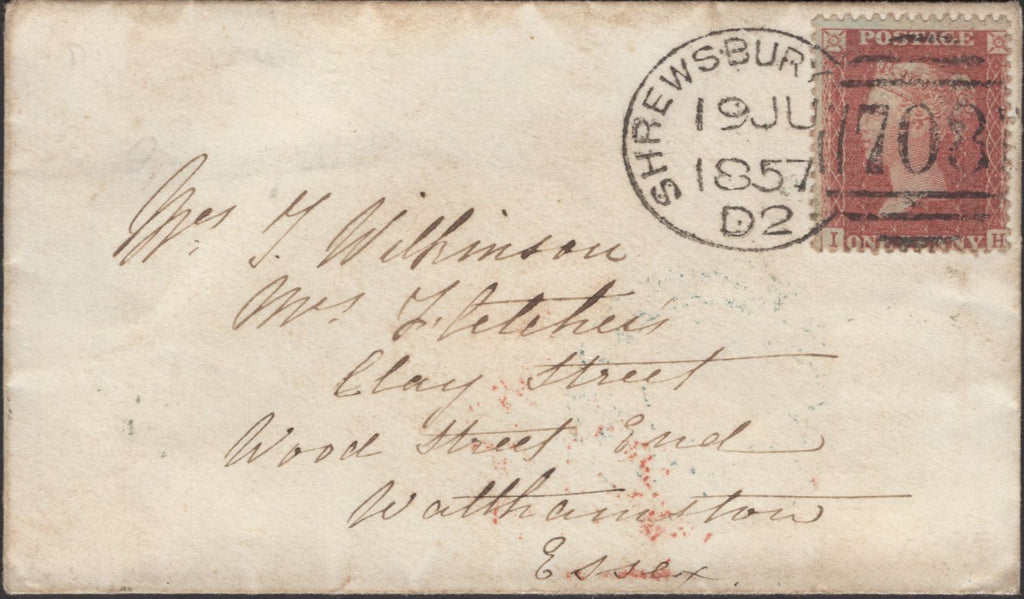 SHREWSBURY
19 JU
1857
D2
POSTAGE
708
I ONE PENNY H
Mrs J. Wilkinson
Mrs Fletcher's
Clay Street
Wood Street End
Walthamstow
Essex.